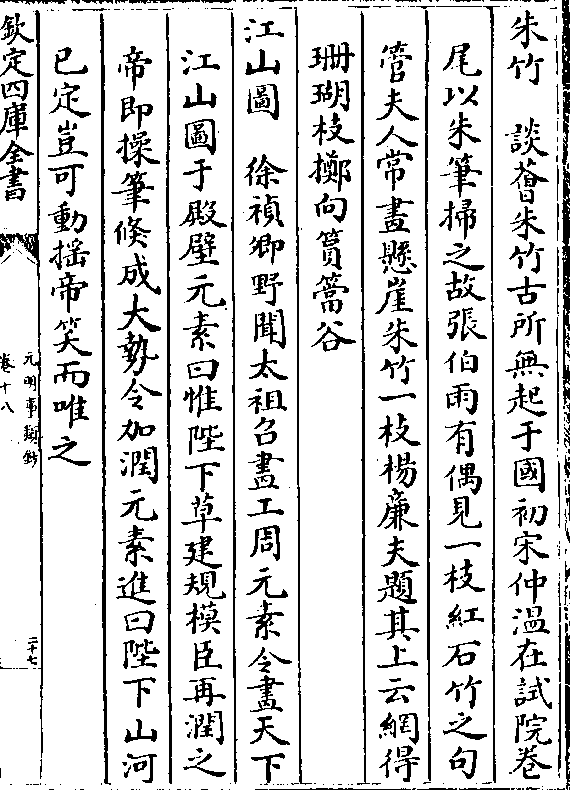 朱竹　談薈朱竹古所無起于國初宋仲温在試院卷
尾以朱筆掃之故張伯雨有偶見一枝紅石竹之句
管夫人常畫懸崖朱竹一枝楊廉夫題其上云網得
珊瑚枝擲向篔簹谷
江山圖　徐禎卿野聞太祖召畫工周元素令畫天下
江山圖于殿壁元素曰惟陛下草建規模臣再潤之
帝即操筆倐成大勢令加潤元素進曰陛下山河
已定豈可動揺帝笑而唯之
欽定四庫全書
元明事類鈔
卷十八
二十七